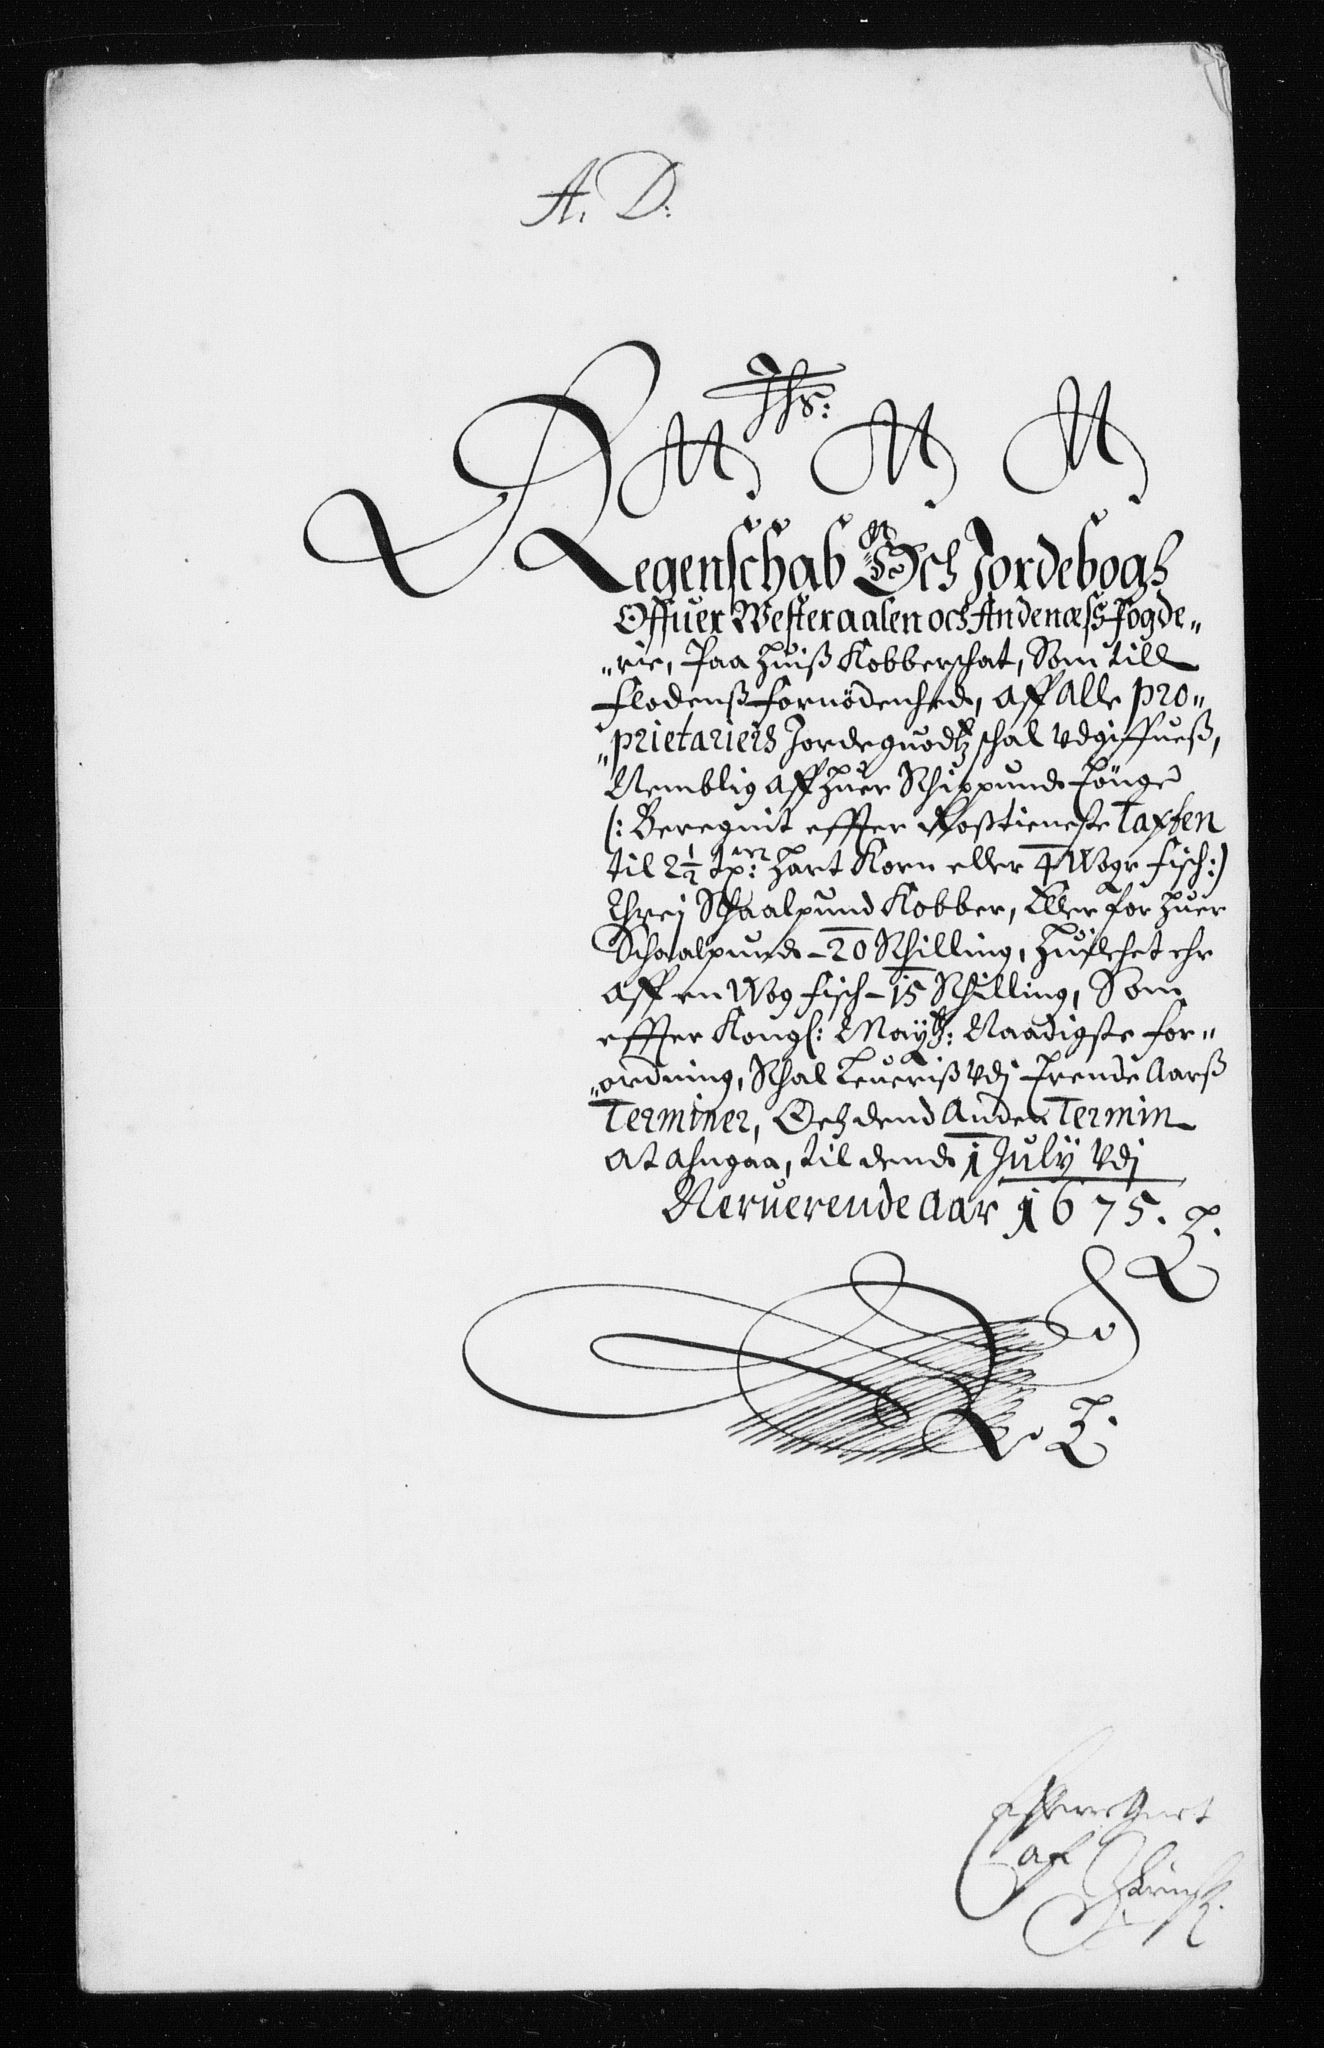 A. D:
Jhs:
Regenschab Och Jordebogh
Offuer Westeraalen och Andenæss Fogde„
„rie, Paa huiß Kobberschat, Som till
Flodenß fornödenhed, aff Alle pro„
„prietariers Jordeguodtz schal vdgiffueß,
Nemblig aff huer Schippund tönge
(: Beregnit effter Roßtieneste Taxten
til 2½ tp: hart Korn eller 4 Woger fisch :)
Threj Schaalpund Kobber, Eller for huer
Schaalpund - 20 Schilling, huilchet ehr
aff en Wog fisch - 15 Schilling, Som
effter Kongl: Maytz: Naadigste for„
„ordning, Schal Leueriß vdj trende Aarß
Terminer, Och dend Anden Termin
at ahngaa, til dend 1 July vdj
Neruerende Aar 1675.
af